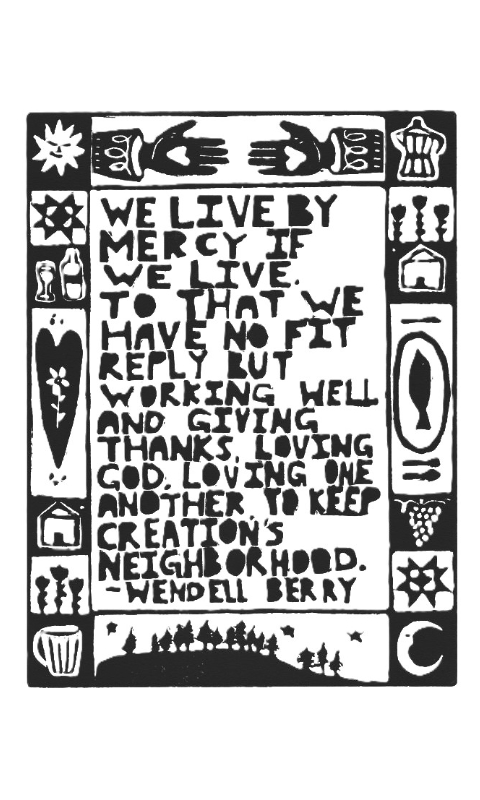 WE LIVE BY
MERCY IF
WE LIVE.
TO THAT WE
HAVE NO FIT
REPLY BUT
WORKING WELL
AND GIVING
THANKS, LOVING
GOD, LOVING ONE
ANOTHER TO KEEP
CREATION'S
NEIGHBORHOOD.
-WENDELL BERRY